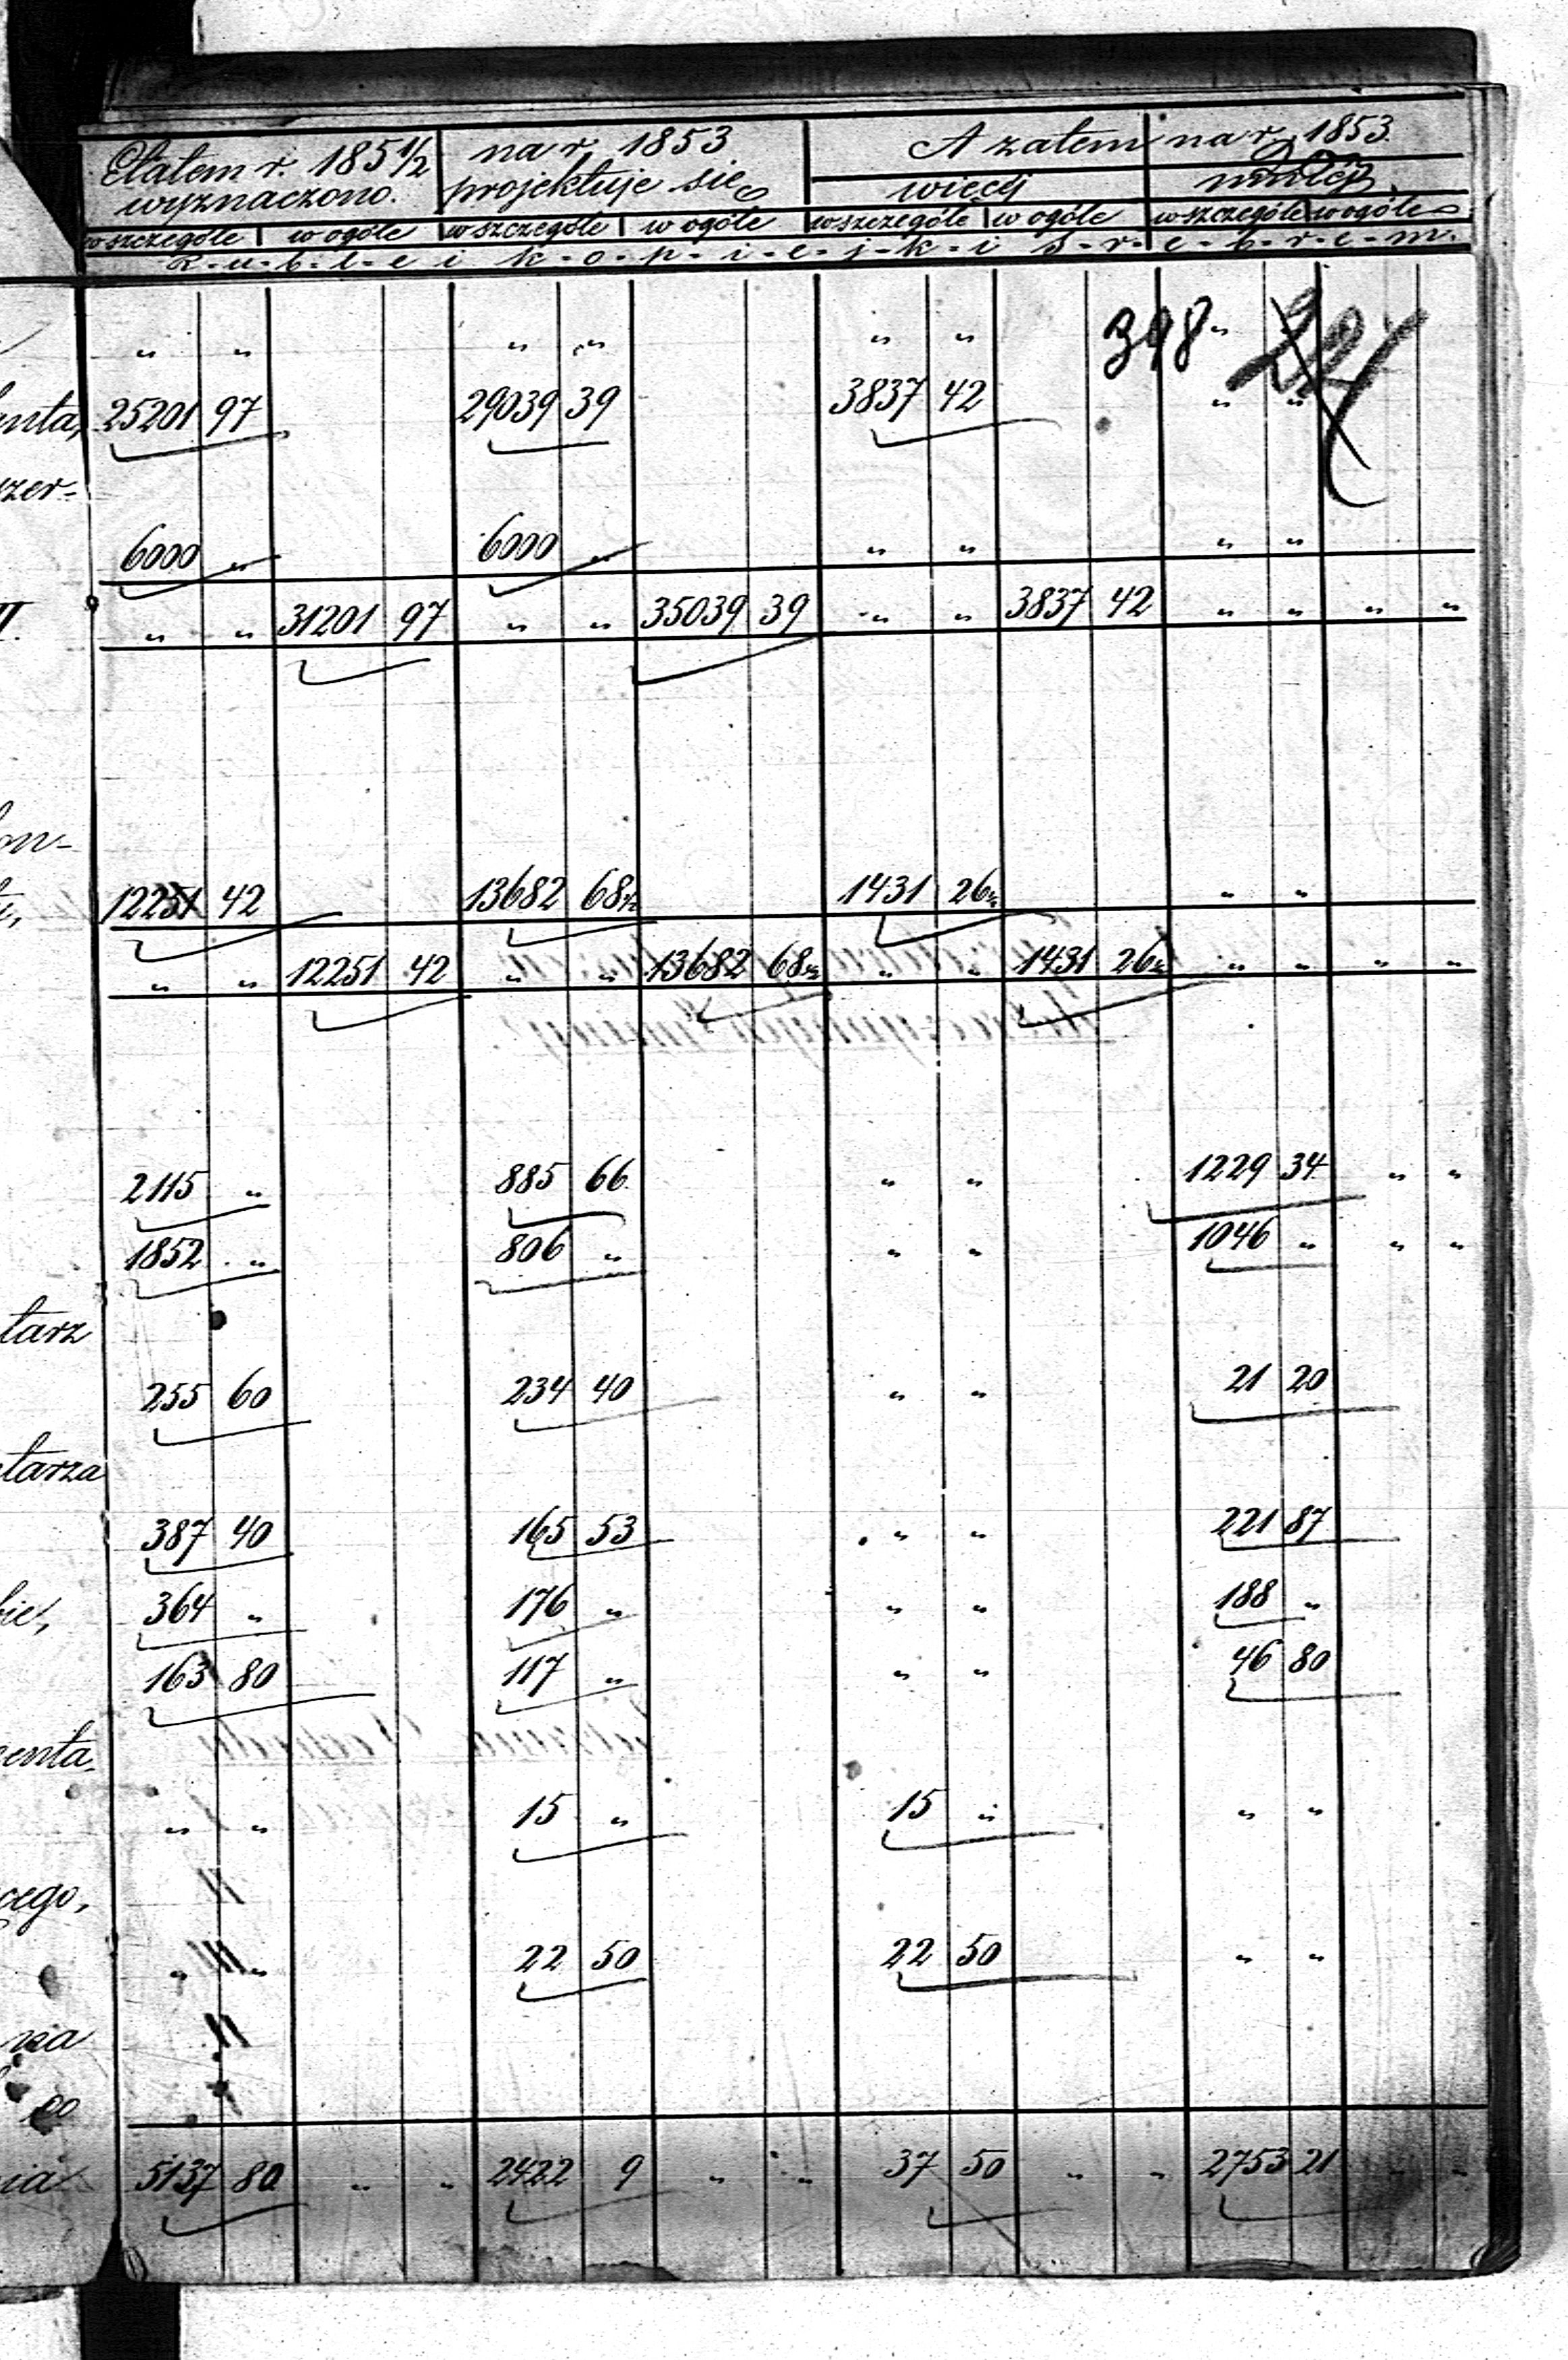 Etatem r. 185 1/2 na r. 1853 A zatem na r. 1853.
wyznaczono. projektuje się więcej mniej
w szczególe w ogóle w szczególe w ogóle w szczególe w ogóle w szczególe w ogóle
R-u-b-l-e i k-o-p-i-e-j-k-i s-r-e-b-r-e-m.
348
" " " " " " "
25201 97 29039 39 3837 42 " "
zer-
6000 " 6000 " " " " "
" " 31201 97 " " 35039 39 " " 3837 42 " " " "
on-
12251 42 13682 68½ 1431 26½ " "
" " 12251 42 " " 13682 68½ " " 1431 26½ " " " "
2115 " 885 66 " " 1229 34 " "
1852 " 806 " " " 1046 " " "
tarz
255 60 234 40 " " 21 20
tarza
387 40 165 53 " " 221 87
364 " 176 " " " 188 "
163 80 117 " " " 46 80
enta
" " 15 " 15 " " "
cego,
" " 22 50 22 50 " "
nia
co
nia 5137 80 " " 2422 9 " " 37 50 " " 2753 21 " "